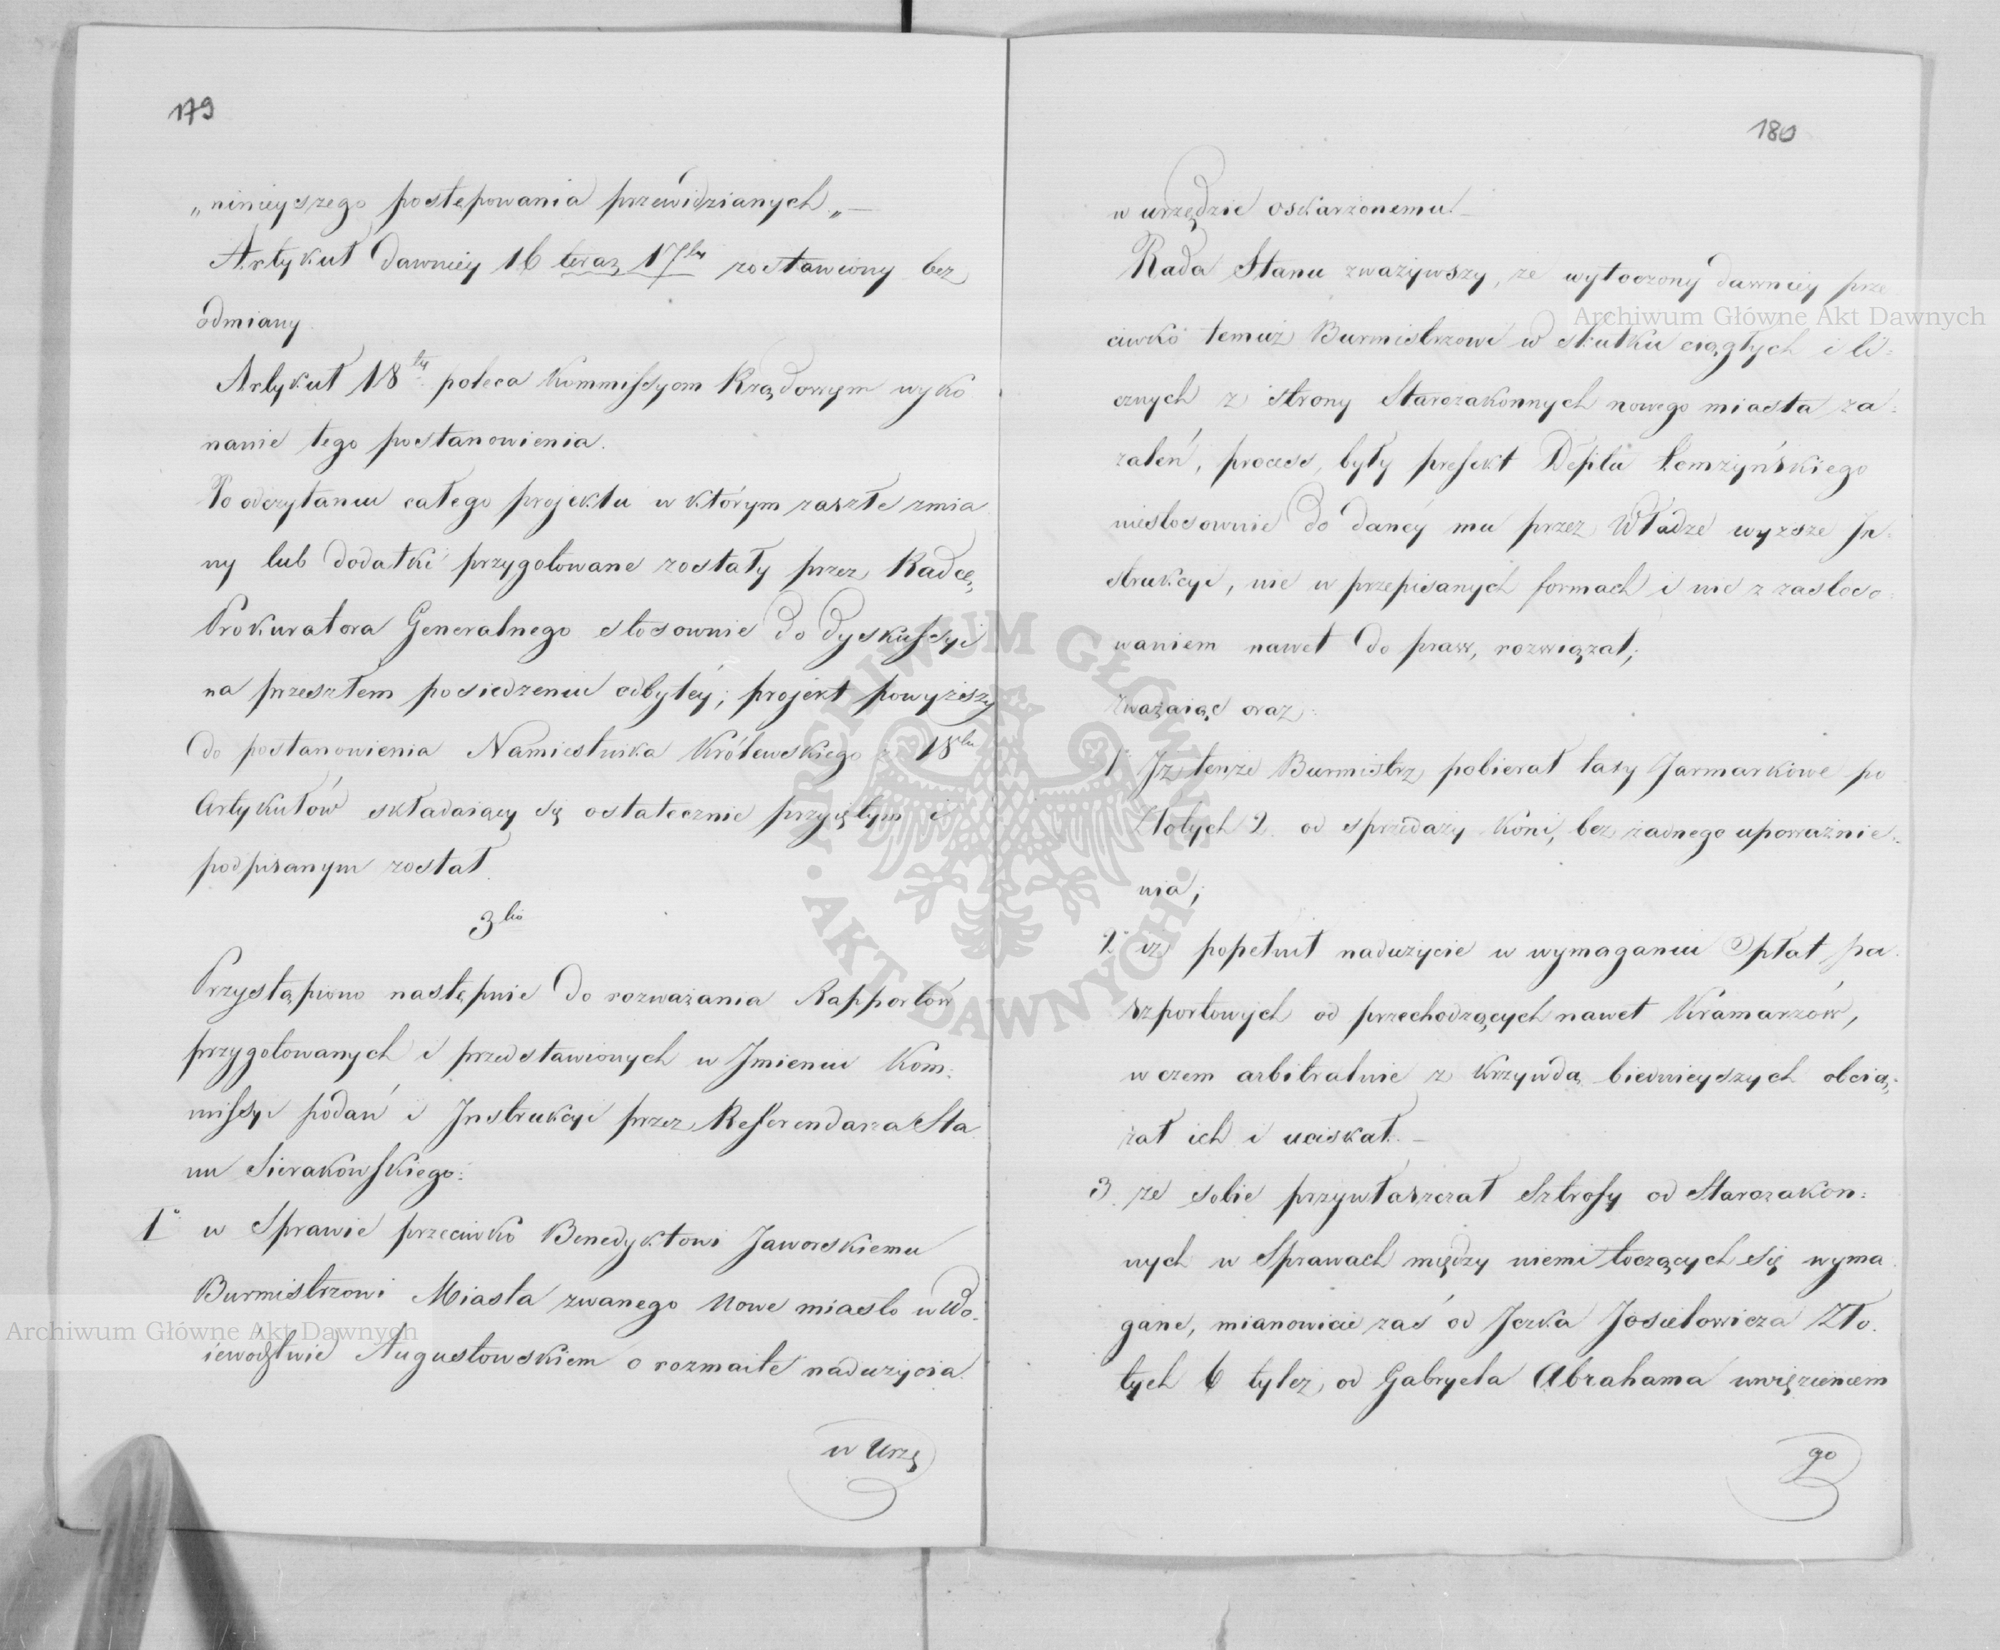 179
„ninieyszego postępowania przewidzianych„ —
Artykuł dawniey 16 teraz 17ty zostawiony bez
odmiany.
Artykuł 18ty poleca Kommissyom Rządowym wyko
nanie tego postanowienia.
Po odczytaniu całego projektu w którym zaszłe zmia
ny lub dodatki przygotowane zostały przez Radcę,
Prokuratora Generalnego stosownie do dyskussyi
na przeszłem posiedzeniu odbytéy; projekt powyższy
do postanowienia Namiestnika Królewskiego z 18tu
Artykułów składaiący się ostatecznie przyiętym i
podpisanym został.
3tio
Przystąpiono następnie do rozważania Rapportów
przygotowanych i przedstawionych w Jmieniu Kom:
missyi podań i Jnstrukcyi przez Referendarza Sta
nu Sierakowskiego:
1° w Sprawie przeciwko Benedyktowi Jaworskiemu
Burmistrzowi Miasta zwanego Nowe miasto w Wo:
iewodztwie Augustowskiem o rozmaite nadużycia
w Urzę
180
w urzędzie oskarżonemu. —
Rada Stanu zważywszy, że wytoczony dawniey prze
ciwko temuż Burmistrzowi w skutku ciągłych i li:
cznych z strony Starozakonnych nowego miasta za:
żaleń, process, były prefekt Deptu Łomżyńskiego
niestosownie do danéy mu przez Władze wyższe Jn:
strukcyi, nie w przepisanych formach i nie z zastoso:
waniem nawet do praw, rozwiązał;
zważaiąc oraz:
1° Jż tenże Burmistrz pobierał taxy Jarmarkowe po
Złotych 2. od sprzedaży koni, bez żadnego upoważnie:
nia;
2° iż popełnił nadużycie w wymaganiu Opłat pa:
szportowych od przechodzących nawet Kramarzów,
w czem arbitralnie z krzywdą biednieyszych obcią:
żał ich i uciskał. —
3. że sobie przywłaszczał Sztrofy od Starozakon:
nych w Sprawach między niemi toczących się wyma
gane, mianowicie zaś od Jczka Josielowicza Zło:
tych 6 tyleż od Gabryela Abrahama uwięzieniem
go
Archiwum Główne Akt Dawnych
Archiwum Główne Akt Dawnych
ARCHIWUM GŁÓWNE AKT DAWNYCH